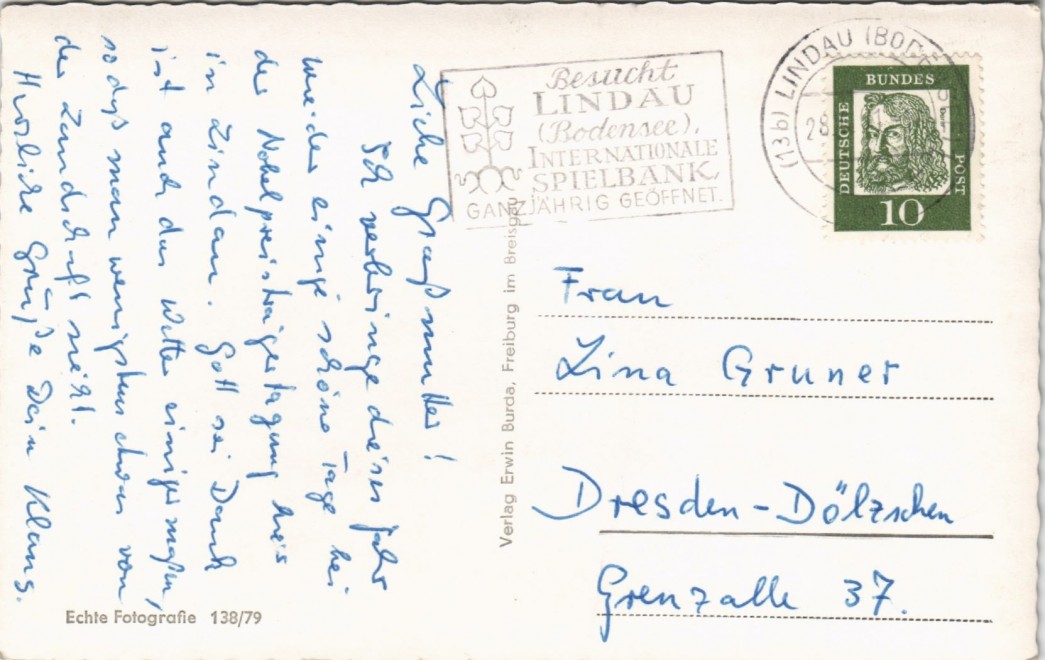 Liebe Großmutter!
Ich verbringe dieses Jahr
wieder einige schöne Tage bei
der Nobelpreisträgertagung hier
in Lindau. Gott sei Dank
ist auch das Wetter einigermaßen,
so daß man wenigstens etwas von
der Landschaft sieht.
Herzliche Grüße Dein Klaus.
Echte Fotografie 138/79
Verlag Erwin Burda, Freiburg im Breisgau
Besucht
LINDAU
(Bodensee),
INTERNATIONALE
SPIELBANK,
GANZJÄHRIG GEÖFFNET.
(13b) LINDAU (BOD
DEUTSCHE
BUNDES
POST
10
Frau
Lina Gruner
Dresden-Dölzschen
Grenzalle 37.